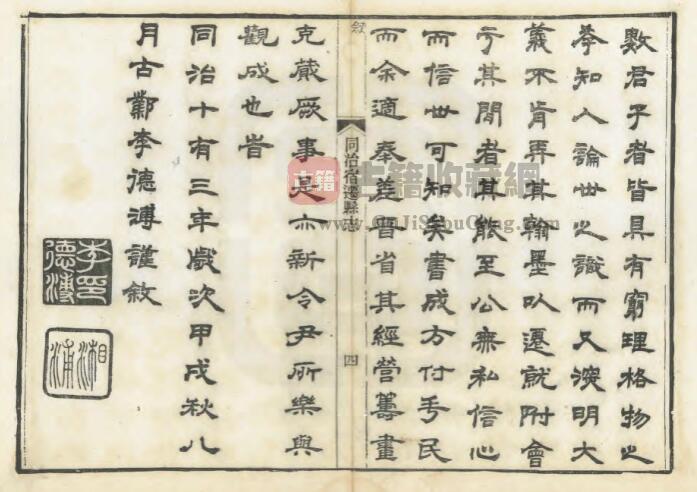 數君子者皆具有窮理格物之
學知人論世之識而又深明大
義不肯弄其翰墨以遷就附會
于其閒者其能至公無私信心
而信世可知矣書成方付手民
而余適奉差晉省其經營籌畫
敘
同治宿遷縣志
四
克蕆厥事是亦新令尹所樂與
觀成也旹
同治十有三年歲次甲戌秋八
月古酇李德溥謹敘
李印德溥
湘浦
古籍
古籍收藏網
www.GuJiShouCang.com